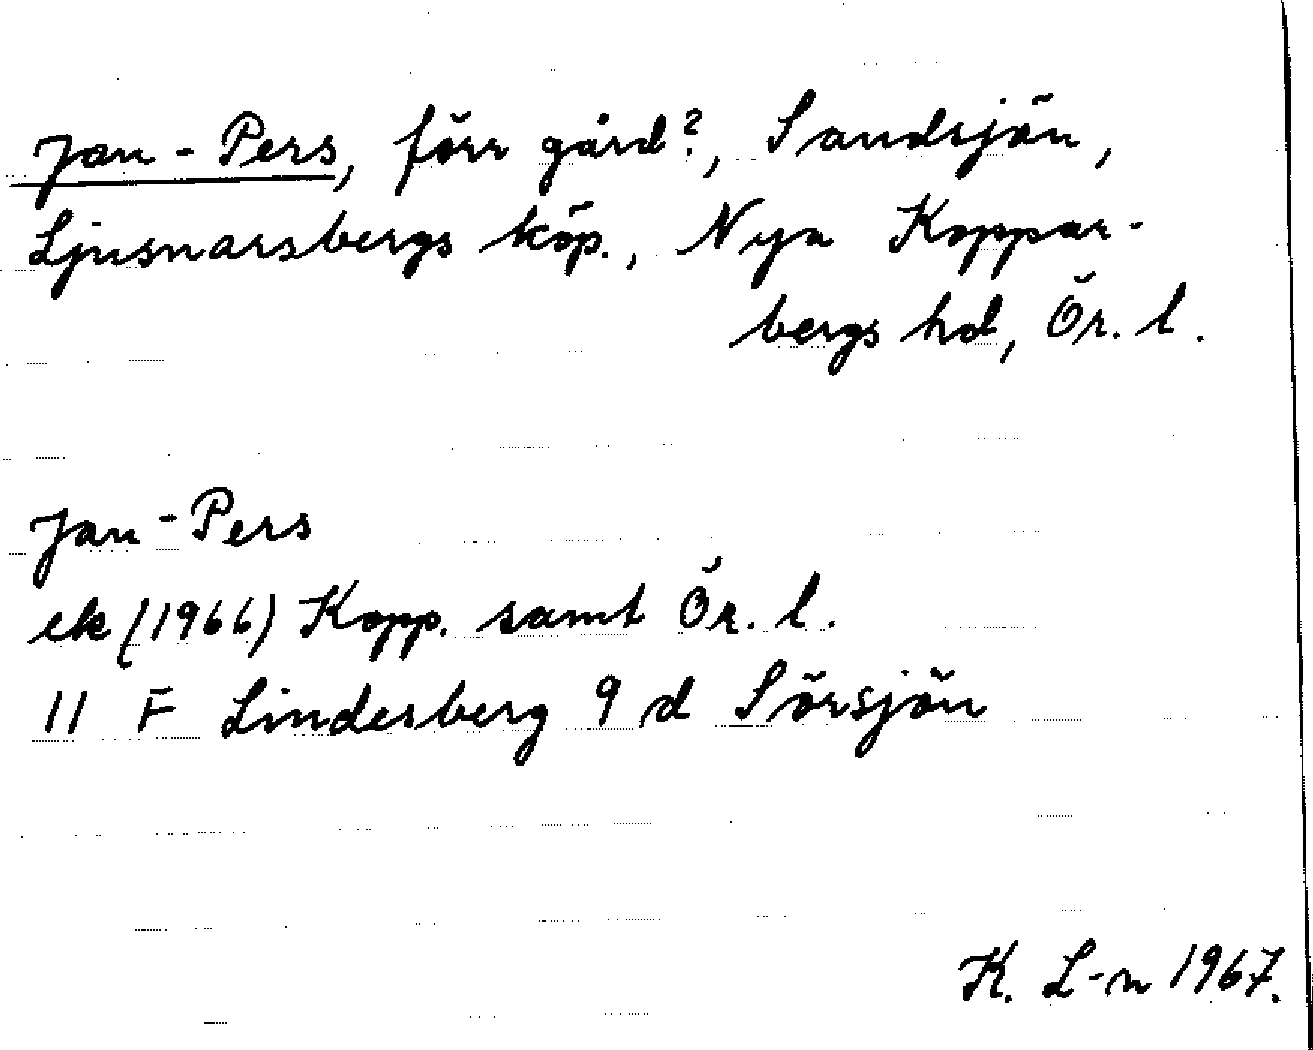 Jan-Pers, förr gård?, Sandsjön,
Ljusnarsbergs köp., Nya Koppar-
bergs hd, Ör. l.
Jan-Pers
ek (1966) Kopp. samt Ör. l.
11 F Lindesberg 9 d Sörsjön
K. L-n 1967.